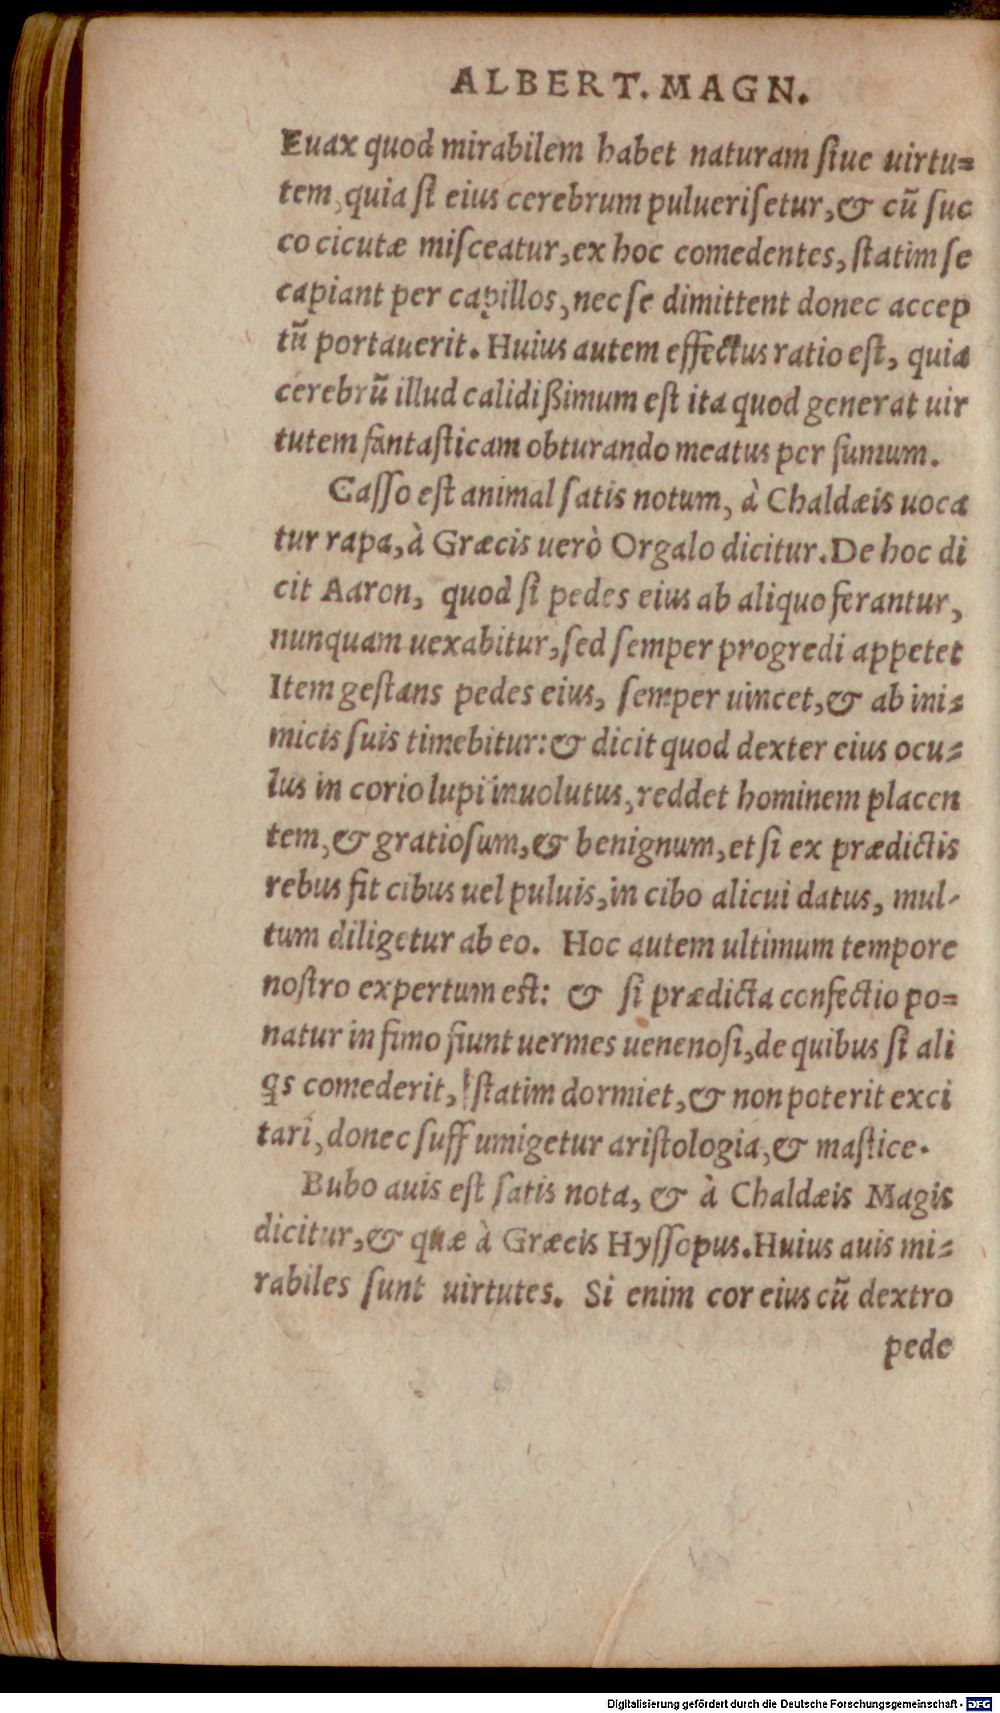 ALBERT. MAGN.
Euax quod mirabilem habet naturam ſiue uirtu=
tem, quia ſi eius cerebrum pulueriſetur, & cũ ſuc
co cicutæ miſceatur, ex hoc comedentes, ſtatim ſe
capiant per capillos, nec ſe dimittent donec accep
tũ portauerit. Huius autem effectus ratio eſt, quia
cerebrũ illud calidißimum eſt ita quod generat uir
tutem fantaſticam obturando meatus per fumum.
Gaſſo eſt animal ſatis notum, à Chaldæis uoca
tur rapa, à Græcis uerò Orgalo dicitur. De hoc di
cit Aaron, quod ſi pedes eius ab aliquo ferantur,
nunquam uexabitur, ſed ſemper progredi appetet
Item geſtans pedes eius, ſemper uincet, & ab ini=
micis ſuis timebitur: & dicit quod dexter eius ocu=
lus in corio lupi inuolutus, reddet hominem placen
tem, & gratioſum, & benignum, et ſi ex prædictis
rebus fit cibus uel puluis, in cibo alicui datus, mul-
tum diligetur ab eo. Hoc autem ultimum tempore
noſtro expertum eſt: & ſi prædicta confectio po=
natur in fimo fiunt uermes uenenoſi, de quibus ſi ali
q̃s comederit, ſtatim dormiet, & non poterit exci
tari, donec ſuffumigetur ariſtologia, & maſtice.
Bubo auis eſt ſatis nota, & à Chaldæis Magis
dicitur, & quæ à Græcis Hyſſopus. Huius auis mi=
rabiles ſunt uirtutes. Si enim cor eius cũ dextro
pede
Digitalisierung gefördert durch die Deutsche Forschungsgemeinschaft - DFG